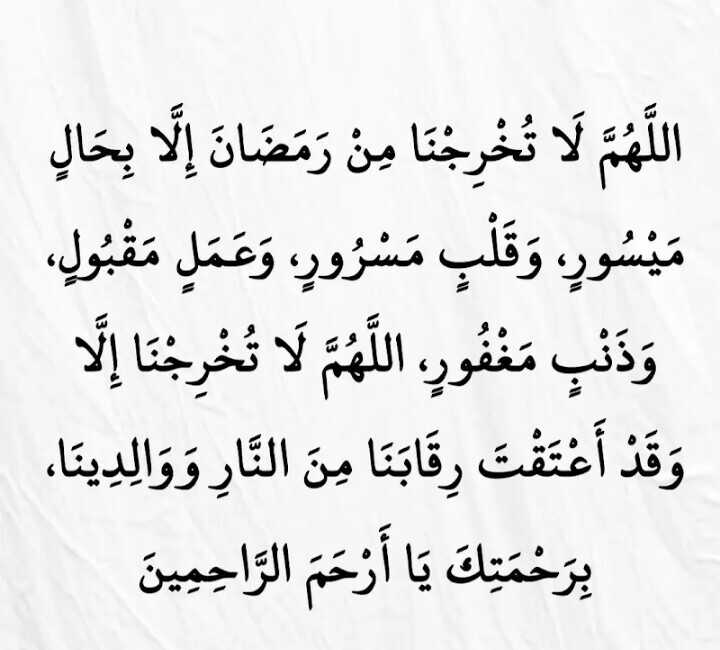 اللَّهُمَّ لَا تُخْرِجْنَا مِنْ رَمَضَانَ إِلَّا بِحَالٍ
مَيْسُورٍ، وَقَلْبٍ مَسْرُورٍ، وَعَمَلٍ مَقْبُولٍ،
وَذَنْبٍ مَغْفُورٍ، اللَّهُمَّ لَا تُخْرِجْنَا إِلَّا
وَقَدْ أَعْتَقْتَ رِقَابَنَا مِنَ النَّارِ وَوَالِدِينَا،
بِرَحْمَتِكَ يَا أَرْحَمَ الرَّاحِمِينَ